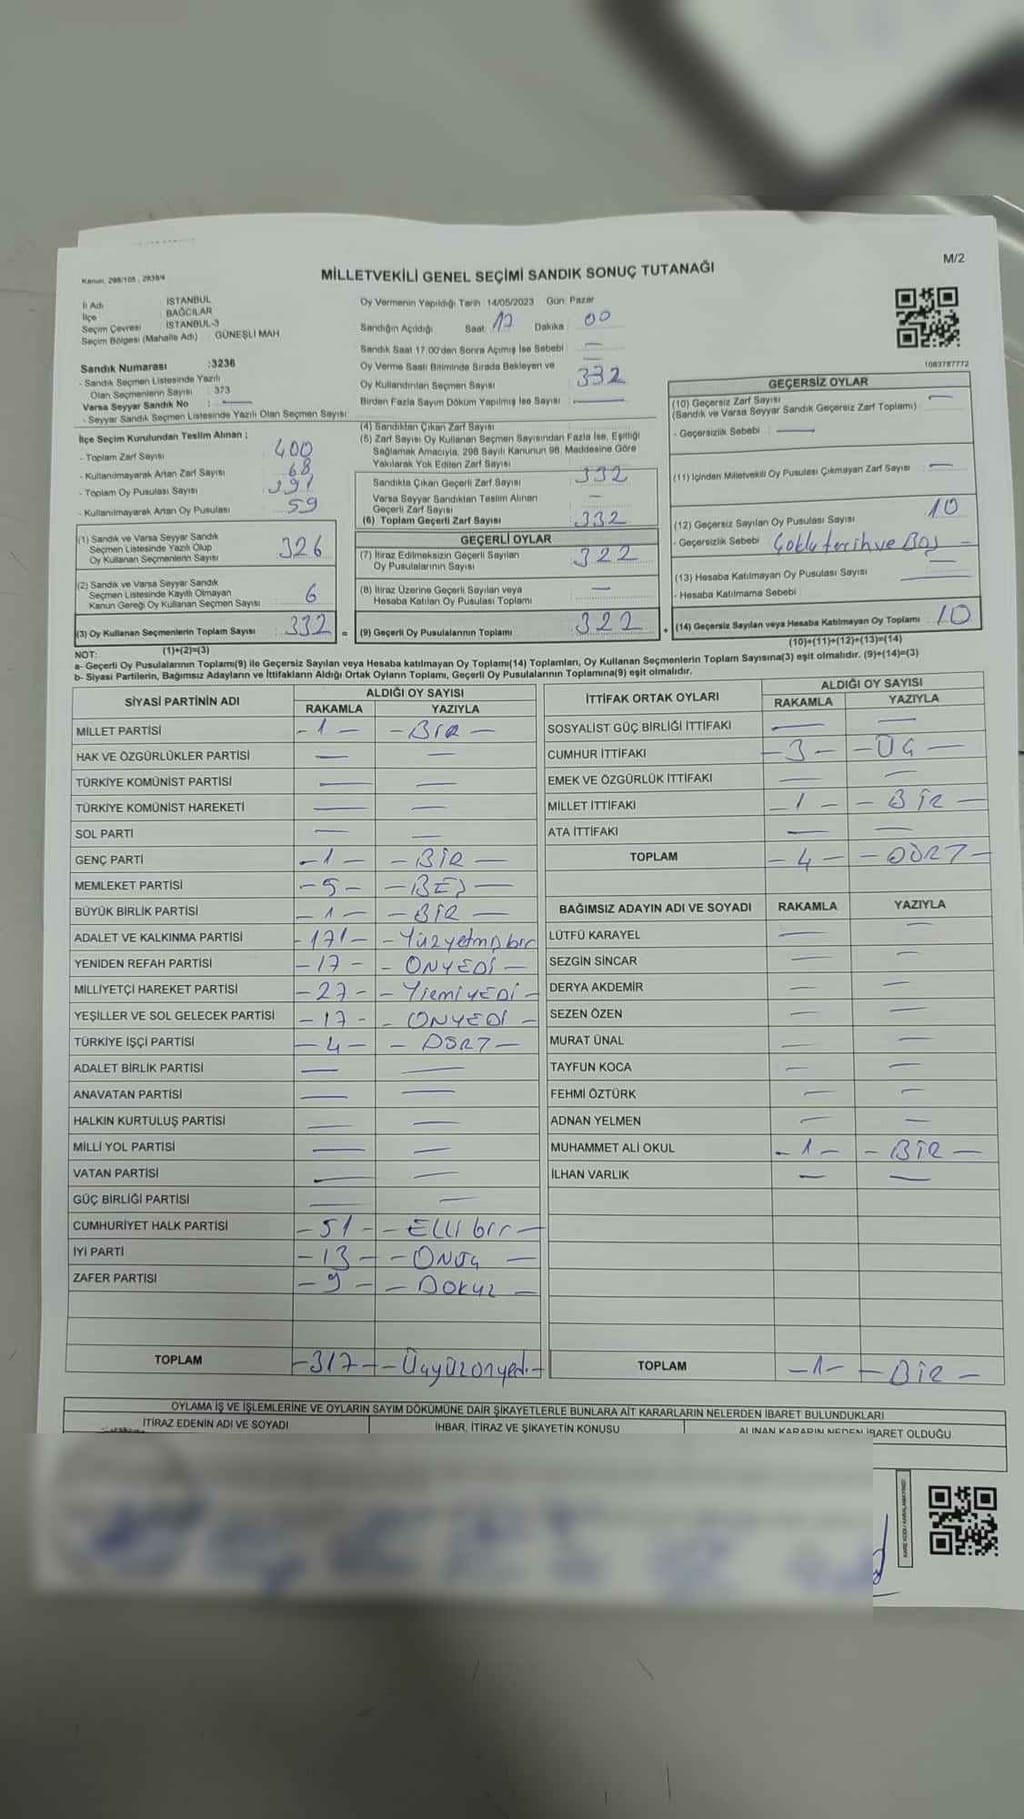 M/2
Kanun: 298/105 , 2839/4
MİLLETVEKİLİ GENEL SEÇİMİ SANDIK SONUÇ TUTANAĞI
1083787772
İl Adı İSTANBUL
İlçe BAĞCILAR
Seçim Çevresi İSTANBUL-3
Seçim Bölgesi (Mahalle Adı) GÜNEŞLİ MAH
Sandık Numarası :3236
- Sandık Seçmen Listesinde Yazılı
Olan Seçmenlerin Sayısı : 373
Varsa Seyyar Sandık No : —
- Seyyar Sandık Seçmen Listesinde Yazılı Olan Seçmen Sayısı
İlçe Seçim Kurulundan Teslim Alınan :
- Toplam Zarf Sayısı 400
- Kullanılmayarak Artan Zarf Sayısı 68
- Toplam Oy Pusulası Sayısı 391
- Kullanılmayarak Artan Oy Pusulası 59
(1) Sandık ve Varsa Seyyar Sandık
Seçmen Listesinde Yazılı Olup
Oy Kullanan Seçmenlerin Sayısı 326
(2) Sandık ve Varsa Seyyar Sandık
Seçmen Listesinde Kayıtlı Olmayan
Kanun Gereği Oy Kullanan Seçmen Sayısı 6
(3) Oy Kullanan Seçmenlerin Toplam Sayısı 332 =
(1)+(2)=(3)
Oy Vermenin Yapıldığı Tarih :14/05/2023 Gün: Pazar
Sandığın Açıldığı Saat: 17 Dakika: 00
Sandık Saat 17.00'den Sonra Açılmış İse Sebebi —
Oy Verme Saati Bitiminde Sırada Bekleyen ve —
Oy Kullandırılan Seçmen Sayısı 332
Birden Fazla Sayım Döküm Yapılmış İse Sayısı —
(4) Sandıktan Çıkan Zarf Sayısı
(5) Zarf Sayısı Oy Kullanan Seçmen Sayısından Fazla İse, Eşitliği
Sağlamak Amacıyla, 298 Sayılı Kanunun 98. Maddesine Göre
Yakılarak Yok Edilen Zarf Sayısı
Sandıkla Çıkan Geçerli Zarf Sayısı 332
Varsa Seyyar Sandıktan Teslim Alınan
Geçerli Zarf Sayısı —
(6) Toplam Geçerli Zarf Sayısı 332
GEÇERLİ OYLAR
(7) İtiraz Edilmeksizin Geçerli Sayılan
Oy Pusulalarının Sayısı 322
(8) İtiraz Üzerine Geçerli Sayılan veya
Hesaba Katılan Oy Pusulası Toplamı —
(9) Geçerli Oy Pusulalarının Toplamı 322 +
GEÇERSİZ OYLAR
(10) Geçersiz Zarf Sayısı —
(Sandık ve Varsa Seyyar Sandık Geçersiz Zarf Toplamı)
- Geçersizlik Sebebi —
(11) İçinden Milletvekili Oy Pusulası Çıkmayan Zarf Sayısı —
(12) Geçersiz Sayılan Oy Pusulası Sayısı 10
- Geçersizlik Sebebi Çoklu tercih ve Boş —
(13) Hesaba Katılmayan Oy Pusulası Sayısı —
- Hesaba Katılmama Sebebi —
(14) Geçersiz Sayılan veya Hesaba Katılmayan Oy Toplamı 10
(10)+(11)+(12)+(13)=(14)
NOT:
a- Geçerli Oy Pusulalarının Toplamı(9) ile Geçersiz Sayılan veya Hesaba katılmayan Oy Toplamı(14) Toplamları, Oy Kullanan Seçmenlerin Toplam Sayısına(3) eşit olmalıdır. (9)+(14)=(3)
b- Siyasi Partilerin, Bağımsız Adayların ve İttifakların Aldığı Ortak Oyların Toplamı, Geçerli Oy Pusulalarının Toplamına(9) eşit olmalıdır.
SİYASİ PARTİNİN ADI ALDIĞI OY SAYISI
RAKAMLA YAZIYLA
MİLLET PARTİSİ -1- -BİR-
HAK VE ÖZGÜRLÜKLER PARTİSİ — —
TÜRKİYE KOMÜNİST PARTİSİ — —
TÜRKİYE KOMÜNİST HAREKETİ — —
SOL PARTİ — —
GENÇ PARTİ -1- -BİR-
MEMLEKET PARTİSİ -5- -BEŞ-
BÜYÜK BİRLİK PARTİSİ -1- -BİR-
ADALET VE KALKINMA PARTİSİ -171- -Yüzyetmişbir
YENİDEN REFAH PARTİSİ -17- -ONYEDİ-
MİLLİYETÇİ HAREKET PARTİSİ -27- -YirmiYEDİ-
YEŞİLLER VE SOL GELECEK PARTİSİ -17- -ONYEDİ-
TÜRKİYE İŞÇİ PARTİSİ -4- -DÖRT-
ADALET BİRLİK PARTİSİ — —
ANAVATAN PARTİSİ — —
HALKIN KURTULUŞ PARTİSİ — —
MİLLİ YOL PARTİSİ — —
VATAN PARTİSİ — —
GÜÇ BİRLİĞİ PARTİSİ — —
CUMHURİYET HALK PARTİSİ -51- -Elli bir-
İYİ PARTİ -13- -ONÜÇ-
ZAFER PARTİSİ -9- -Dokuz-
TOPLAM -317- -Üçyüzonyedi-
İTTİFAK ORTAK OYLARI ALDIĞI OY SAYISI
RAKAMLA YAZIYLA
SOSYALİST GÜÇ BİRLİĞİ İTTİFAKI — —
CUMHUR İTTİFAKI -3- -ÜÇ-
EMEK VE ÖZGÜRLÜK İTTİFAKI — —
MİLLET İTTİFAKI -1- -BİR-
ATA İTTİFAKI — —
TOPLAM -4- -DÖRT-
BAĞIMSIZ ADAYIN ADI VE SOYADI RAKAMLA YAZIYLA
LÜTFÜ KARAYEL — —
SEZGİN SİNCAR — —
DERYA AKDEMİR — —
SEZEN ÖZEN — —
MURAT ÜNAL — —
TAYFUN KOCA — —
FEHMİ ÖZTÜRK — —
ADNAN YELMEN — —
MUHAMMET ALİ OKUL -1- -BİR-
İLHAN VARLIK — —
TOPLAM -1- -BİR-
OYLAMA İŞ VE İŞLEMLERİNE VE OYLARIN SAYIM DÖKÜMÜNE DAİR ŞİKAYETLERLE BUNLARA AİT KARARLARIN NELERDEN İBARET BULUNDUKLARI
İTİRAZ EDENİN ADI VE SOYADI İHBAR, İTİRAZ VE ŞİKAYETİN KONUSU ALINAN KARARIN NEDEN İBARET OLDUĞU